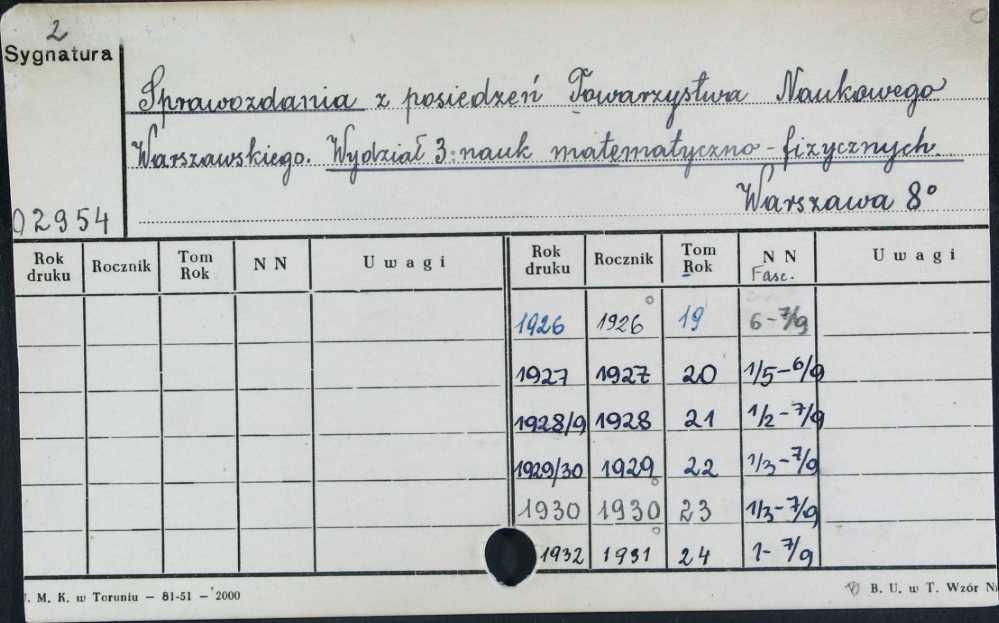 2
Sygnatura
Sprawozdania z posiedzeń Towarzystwa Naukowego
Warszawskiego. Wydział 3: nauk matematyczno-fizycznych.
Warszawa 8°
02954
Rok druku Rocznik Tom Rok N N Uwagi Rok druku Rocznik Tom Rok N N Fasc. Uwagi
1926 1926 19 6-7/9
1927 1927 20 1/5-6/9
1928/9 1928 21 1/2-7/9
1929/30 1929 22 1/3-7/9
1930 1930 23 1/3-7/9
1932 1931 24 1-7/9
. M. K. w Toruniu — 81-51 — 2000
B. U. w T. Wzór N